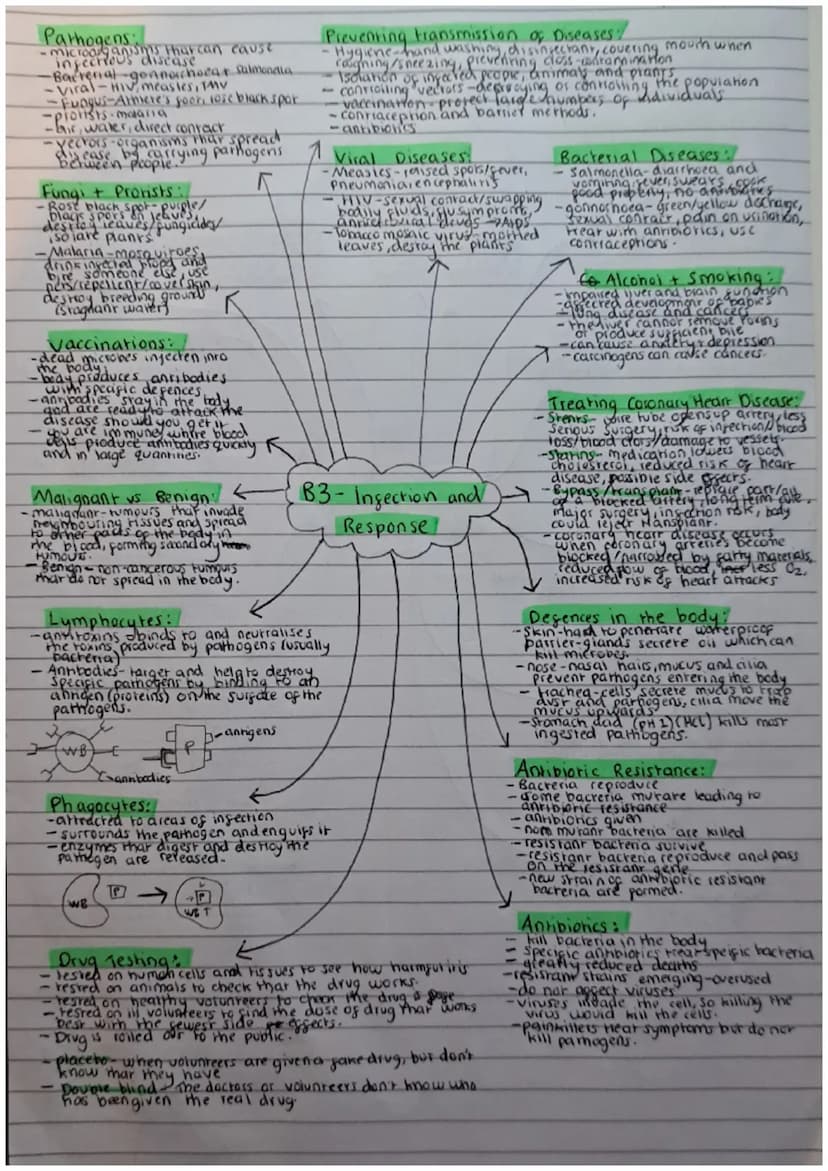 Pathogens:
- microorganisms that can cause
infectious disease
- Bacterial - gonnorhoea + salmonella
- Viral - HIV, measles, TMV
- Fungus - Athlete's foot, rose black spot
- protists - malaria
- air, water, direct contact
- vectors - organisms that spread
disease by carrying pathogens
between people.
Preventing transmission of Diseases:
- Hygiene - hand washing, disinfectant, covering mouth when
coughing/sneezing, preventing cross-contamination
- Isolation of infected people, animals and plants
- controlling vectors - destroying or controlling the population
- vaccination - protect large numbers of individuals
- contraception and barrier methods.
- antibiotics
Viral Diseases:
- Measles - raised spots/fever,
pneumonia, encephalitis
- HIV - sexual contact/swapping
bodily fluids, flu symptoms,
antiretroviral drugs → AIDS
- Tobacco mosaic virus - mottled
leaves, destroy the plants
Bacterial Diseases:
- Salmonella - diarrhoea and
vomiting, fever, swears, cook
food properly, no antibiotics
- gonnorhoea - green/yellow discharge,
sexual contact, pain on urination,
treat with antibiotics, use
contraceptions.
Fungi + Protists:
- Rose black spot - purple/
black spots on leaves,
destroy leaves/fungicides/
isolate plants
- Malaria - mosquitoes
drink infected blood and
bite someone else, use
nets/repellent/cover skin,
destroy breeding ground
(stagnant water)
Alcohol + Smoking:
- impaired liver and brain function
- affected development of babies
- lung disease and cancers
- the liver cannot remove toxins
or produce sufficient bile
- can cause anxiety + depression
- carcinogens can cause cancers.
Vaccinations:
- dead microbes injected into
the body
- body produces antibodies
with specific defences
- antibodies stay in the body
and are ready to attack the
disease should you get it
- you are immune, where blood
cells produce antibodies quickly
and in large quantities.
Treating Coronary Heart Disease:
- Stents - wire tube opens up artery, less
serious surgery, risk of infection/blood
loss/blood clots/damage to vessels.
- Statins - medication lowers blood
cholesterol, reduced risk of heart
disease, possible side effects.
- Bypass/transplant - replace part/all
of a blocked artery, long term cure,
major surgery, infection risk, body
could reject transplant.
- coronary heart disease occurs
when coronary arteries become
blocked/narrowed by fatty materials,
reduced flow of blood, less O2,
increased risk of heart attacks
B3 - Infection and
Response
Malignant vs Benign:
- malignant - tumours that invade
neighbouring tissues and spread
to other parts of the body in
the blood, forming secondary
tumours.
- Benign - non-cancerous tumours
that do not spread in the body.
Lymphocytes:
- antitoxins binds to and neutralises
the toxins produced by pathogens (usually
bacteria)
- Antibodies - target and help to destroy
specific pathogens by binding to an
antigen (proteins) on the surface of the
pathogens.
WB
P
antigens
antibodies
Defences in the body:
- skin - hard to penetrate waterproof
barrier - glands secrete oil which can
kill microbes.
- nose - nasal hairs, mucus and cilia
prevent pathogens entering the body
- trachea - cells secrete mucus to trap
dust and pathogens, cilia move the
mucus upwards
- stomach acid (pH 2) (HCl) kills most
ingested pathogens.
Phagocytes:
- attracted to areas of infection
- surrounds the pathogen and engulfs it
- enzymes that digest and destroy the
pathogen are released.
WB
P
P
WBT
Antibiotic Resistance:
- Bacteria reproduce
- some bacteria mutate leading to
antibiotic resistance
- antibiotics given
- non mutant bacteria are killed
- resistant bacteria survive
- resistant bacteria reproduce and pass
on the resistant gene
- new strain of antibiotic resistant
bacteria are formed.
Antibiotics:
- kill bacteria in the body
- specific antibiotics treat speific bacteria
- greatly reduced deaths
- resistant strains emerging - overused
- do not affect viruses
- viruses invade the cell, so killing the
virus would kill the cells.
- painkillers treat symptoms but do not
kill pathogens.
Drug Testing:
- tested on human cells and tissues to see how harmful it is
- tested on animals to check that the drug works.
- tested on healthy volunteers to check the drug is safe
- tested on ill volunteers to find the dose of drug that works
best with the fewest side effects.
- Drug is rolled out to the public.
- placebo - when volunteers are given a fake drug, but don't
know that they have
- Double blind - the doctors or volunteers don't know who
has been given the real drug.